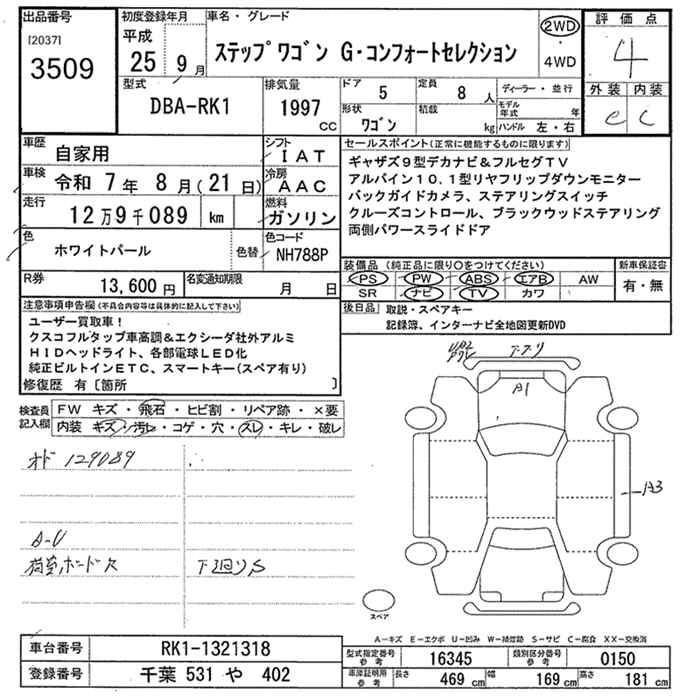 出品番号
[2037]
3509
初度登録年月
平成
25 9月
車名・グレード
ステップワゴン G・コンフォートセレクション
2WD
・
4WD
評価点
4
外装 内装
C
型式
DBA-RK1
排気量
1997
CC
ドア
5
定員
8 人
形状
ワゴン
積載
kg
ディーラー・並行
モデル年式
年
ハンドル 左・右
車歴
自家用
シフト
IAT
車検
令和 7年 8月(21日)
冷房
AAC
走行
12万9千089 km
燃料
ガソリン
色
ホワイトパール
色替
色コード
NH788P
R券
13,600円
名変通知期限
月 日
セールスポイント(正常に機能するものに限り)
ギャザズ9型デカナビ&フルセグTV
アルパイン10.1型リヤフリップダウンモニター
バックガイドカメラ、ステアリングスイッチ
クルーズコントロール、ブラックウッドステアリング
両側パワースライドドア
装備品 (純正品に限り○をつけてください)
PS PW ABS エアB AW
SR ナビ TV カワ
新車保証書
有・無
後日品
取説・スペアキー
記録簿、インターナビ全地図更新DVD
注意事項申告欄(不具合内容等は具体的に記入して下さい)
ユーザー買取車!
クスコフルタップ車高調&エクシーダ社外アルミ
HIDヘッドライト、各部電球LED化
純正ビルトインETC、スマートキー(スペア有り)
修復歴 有〔箇所 〕
検査員記入欄
FW キズ・飛石・ヒビ割・リペア跡・×要
内装 キズ・汚レ・コゲ・穴・スレ・キレ・破レ
オド 129089
A-U
荷室ボード欠
下廻りS
A1
A3
スペア
A-キズ E-エクボ U-凹み W-補修跡 S-サビ C-腐食 XX-交換済
車台番号
RK1-1321318
登録番号
千葉 531 や 402
型式指定番号
参考
16345
類別区分番号
参考
0150
車庫証明用
参考
長さ
469 cm
幅
169 cm
高さ
181 cm